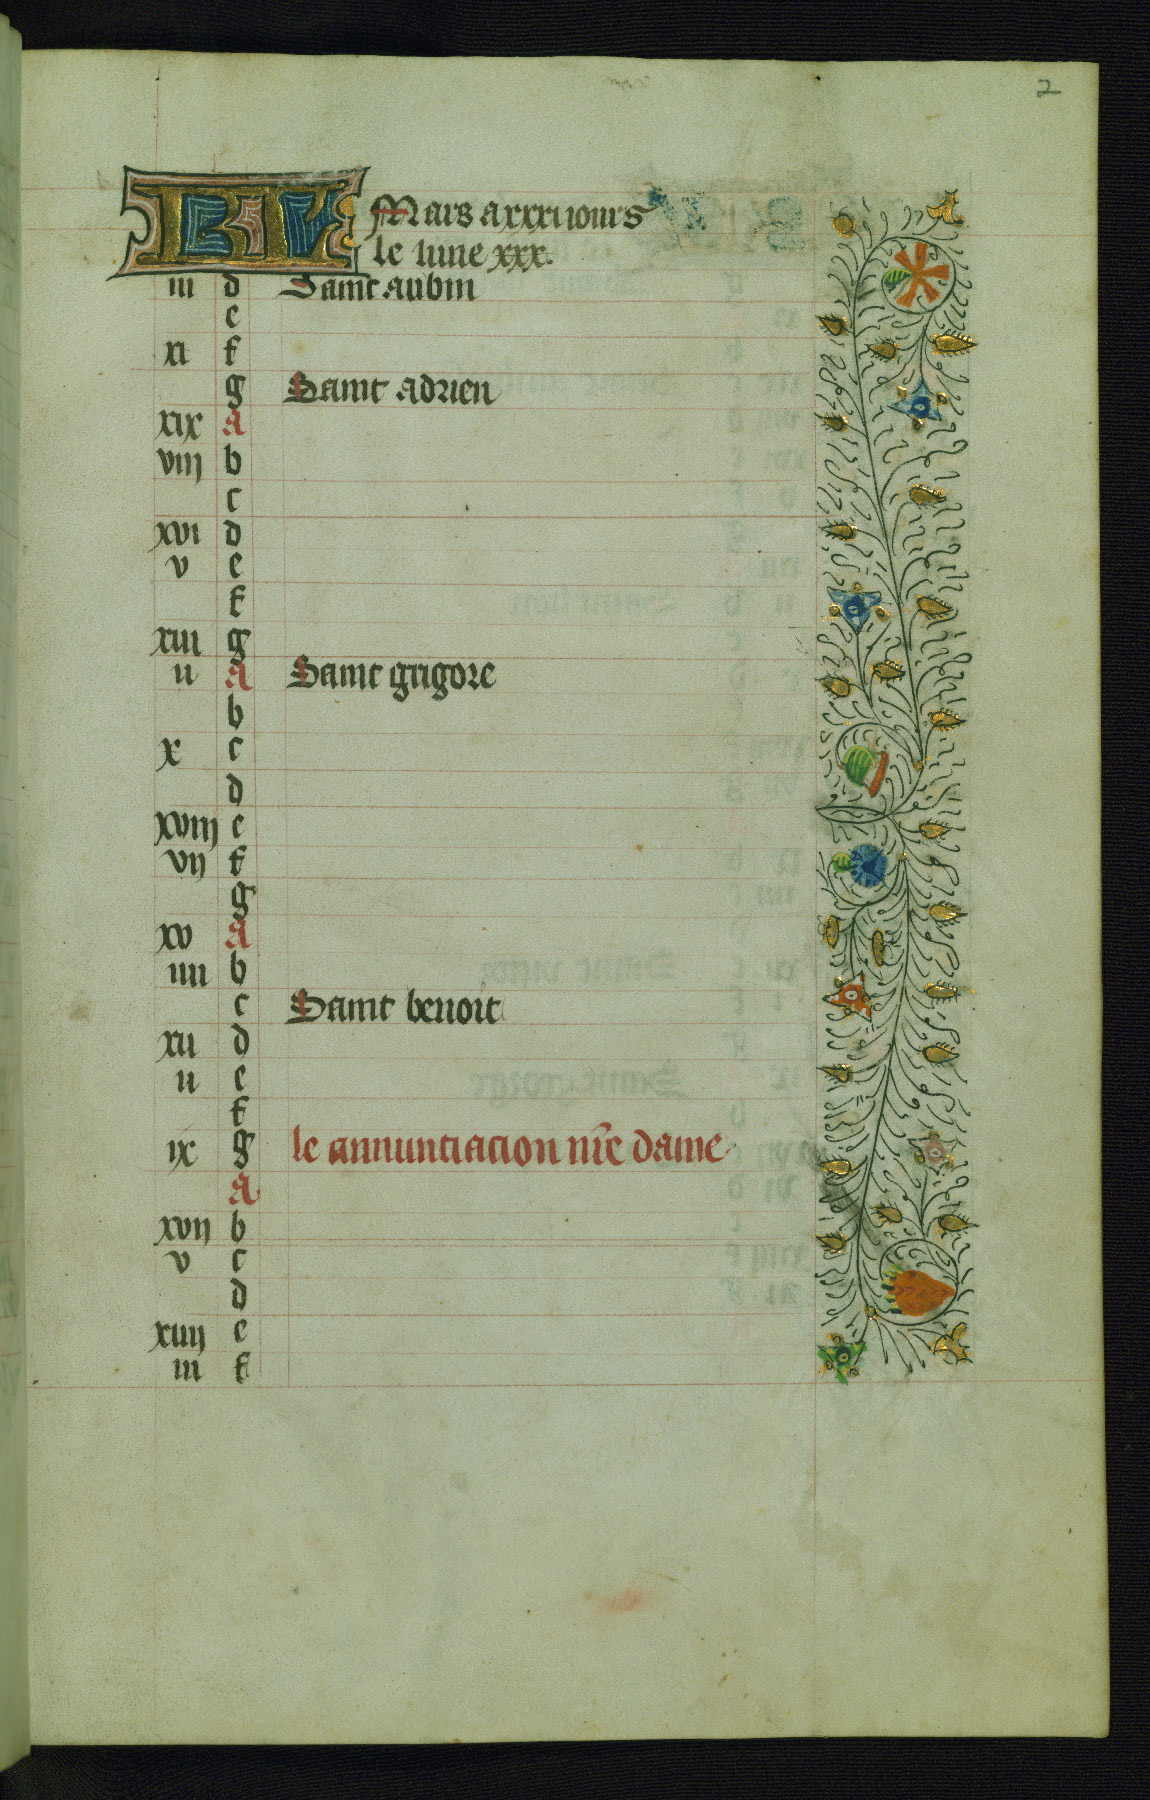 2
KL Mars a xxxi iours
le lune xxx.
iii d Saint aubin
e
xi f
g Saint adrien
xix A
viij b
c
xvi d
v e
f
xiii g
ii A Saint grigore
b
x c
d
xviij e
vij f
g
xv A
iiii b
c Saint benoit
xii d
ii e
f
ix g le annunciacion nr̄e dame
A
xvij b
v c
d
xiiij e
iii f